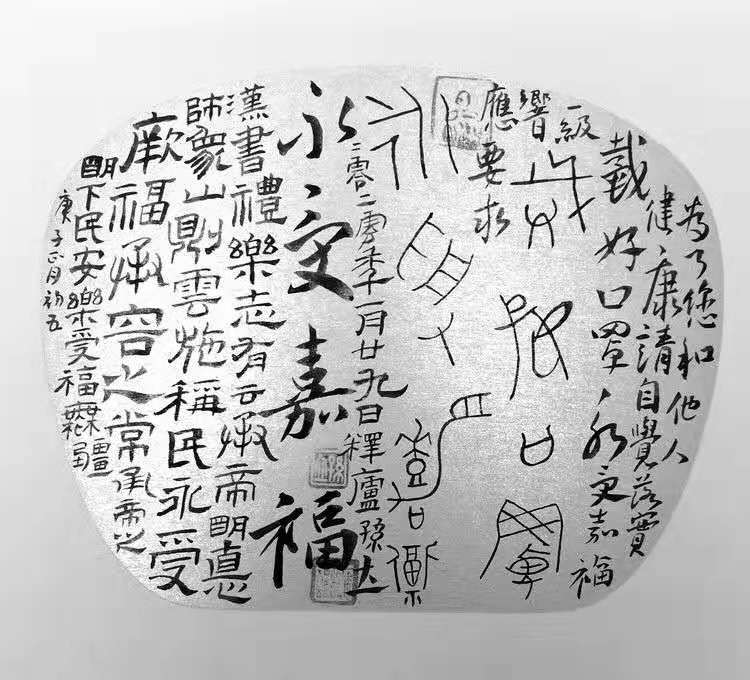 為了您和他人
健康請自覺落實
戴好口罩永受嘉福
一級
響
應要求
戴好口罩
永受嘉福
二零二零年一月廿九日釋廬孫大
永受嘉福
漢書禮樂志有云承帝明德
師象山則雲施稱民永受
厥福承容之常承帝之
明下民安樂受福無疆
庚子正月初五